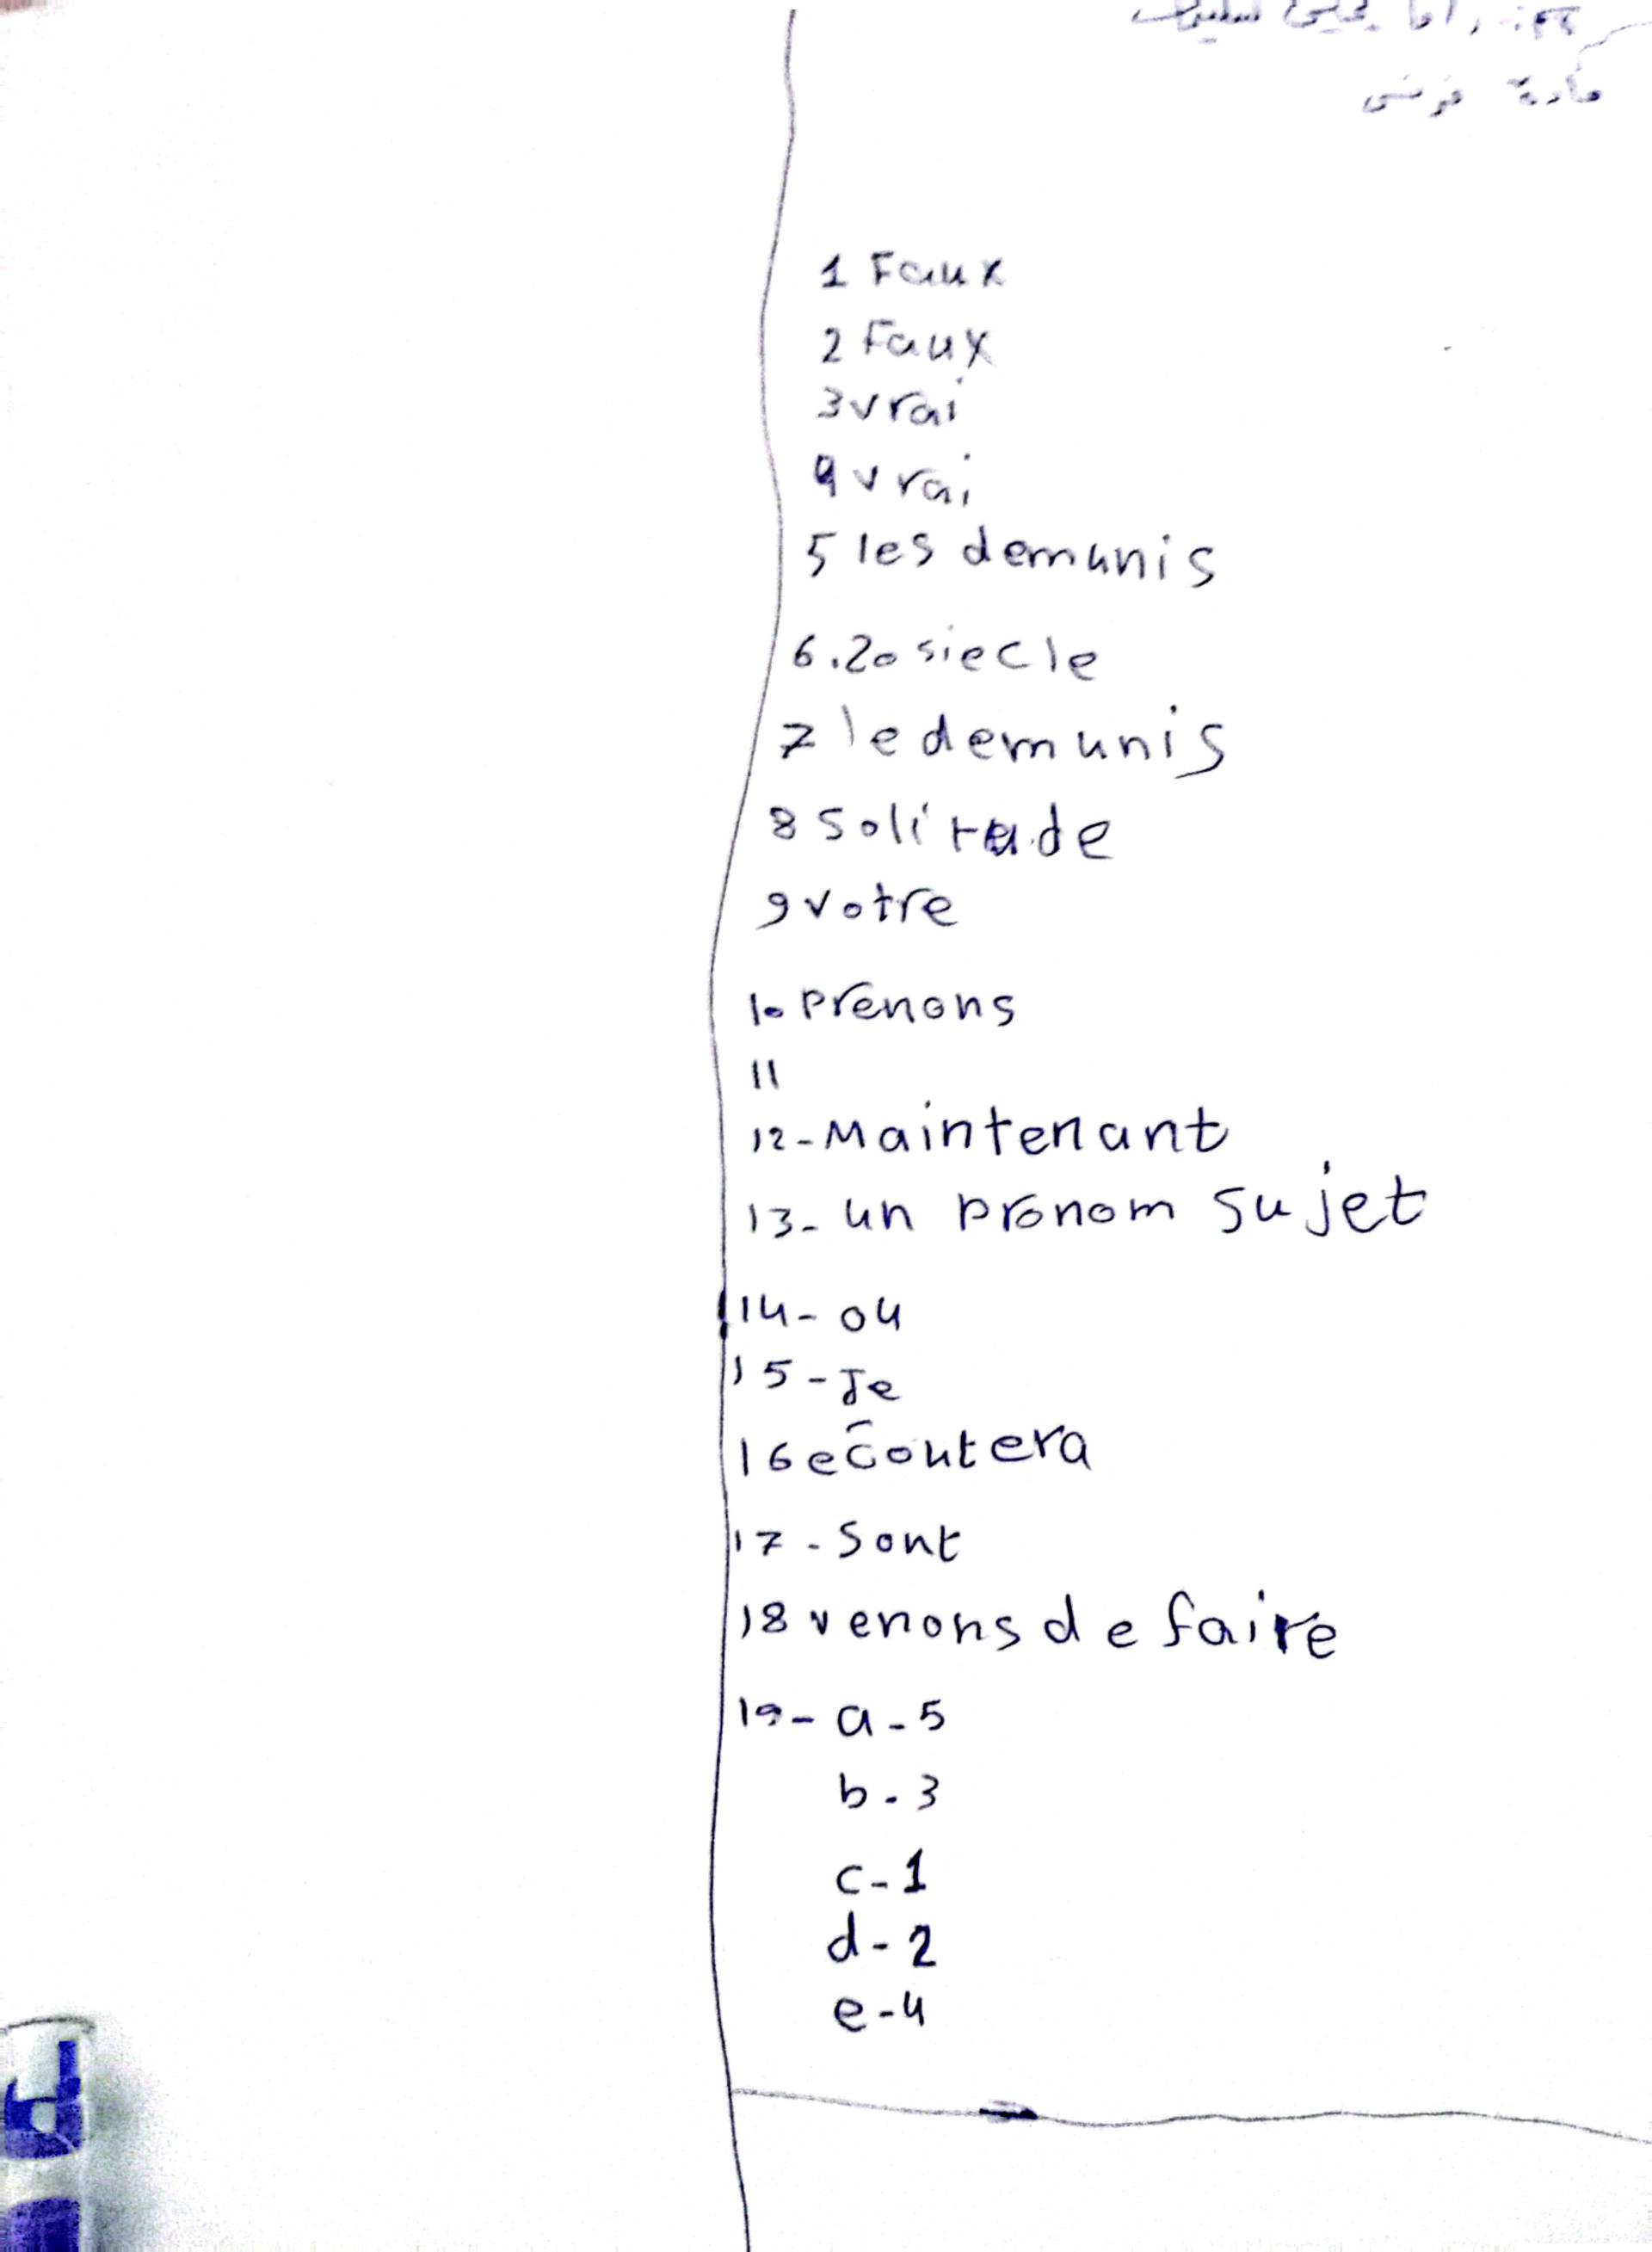 مادة فرنسي
1 Faux
2 Faux
3 vrai
4 vrai
5 les demunis
6.20 siecle
7 le demunis
8 Solitude
9 votre
10 Prenons
11
12-Maintenant
13- un pronom sujet
14- ou
15-Je
16 ecoutera
17-Sont
18 venons de faire
19- a-5
b-3
c-1
d-2
e-4